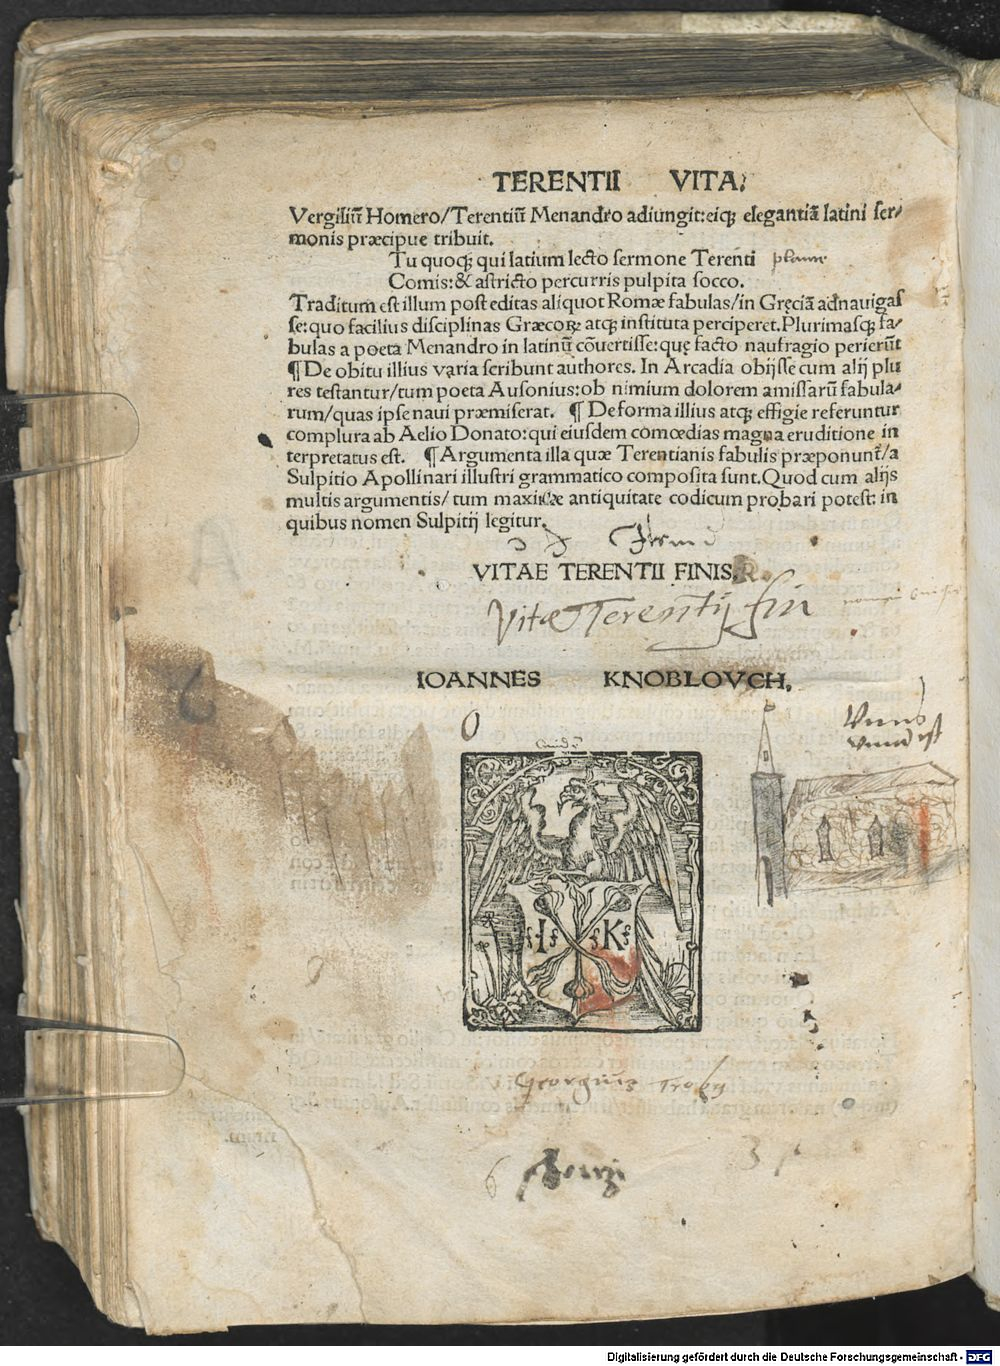 TERENTII VITA.
Vergiliū Homero/Terentiū Menandro adiungit:eiqꝫ elegantiā latini ser/
monis præcipue tribuit.
Tu quoqꝫ qui latium lecto sermone Terenti
Comis:& astricto percurris pulpita socco.
Traditum est illum post editas aliquot Romæ fabulas/in Gręciā adnauigas
se:quo facilius disciplinas Græcoꝝ atqꝫ instituta perciperet.Plurimasqꝫ fa/
bulas a poeta Menandro in latinū cōuertisse:quę facto naufragio perierūt
¶De obitu illius varia scribunt authores. In Arcadia obijsse cum alij plu
res testantur/tum poeta Ausonius:ob nimium dolorem amissarū fabula/
rum/quas ipse naui præmiserat. ¶ De forma illius atqꝫ effigie referuntur
complura ab Aelio Donato:qui eiusdem comœdias magna eruditione in
terpretatus est. ¶Argumenta illa quæ Terentianis fabulis præponunt/a
Sulpitio Apollinari illustri grammatico composita sunt.Quod cum alijs
multis argumentis/ tum maximæ antiquitate codicum probari potest: in
quibus nomen Sulpitij legitur.
VITAE TERENTII FINIS.
Vitæ Terentij fin
IOANNES KNOBLOVCH.
O
I K
Georgius
Digitalisierung gefördert durch die Deutsche Forschungsgemeinschaft - DFG